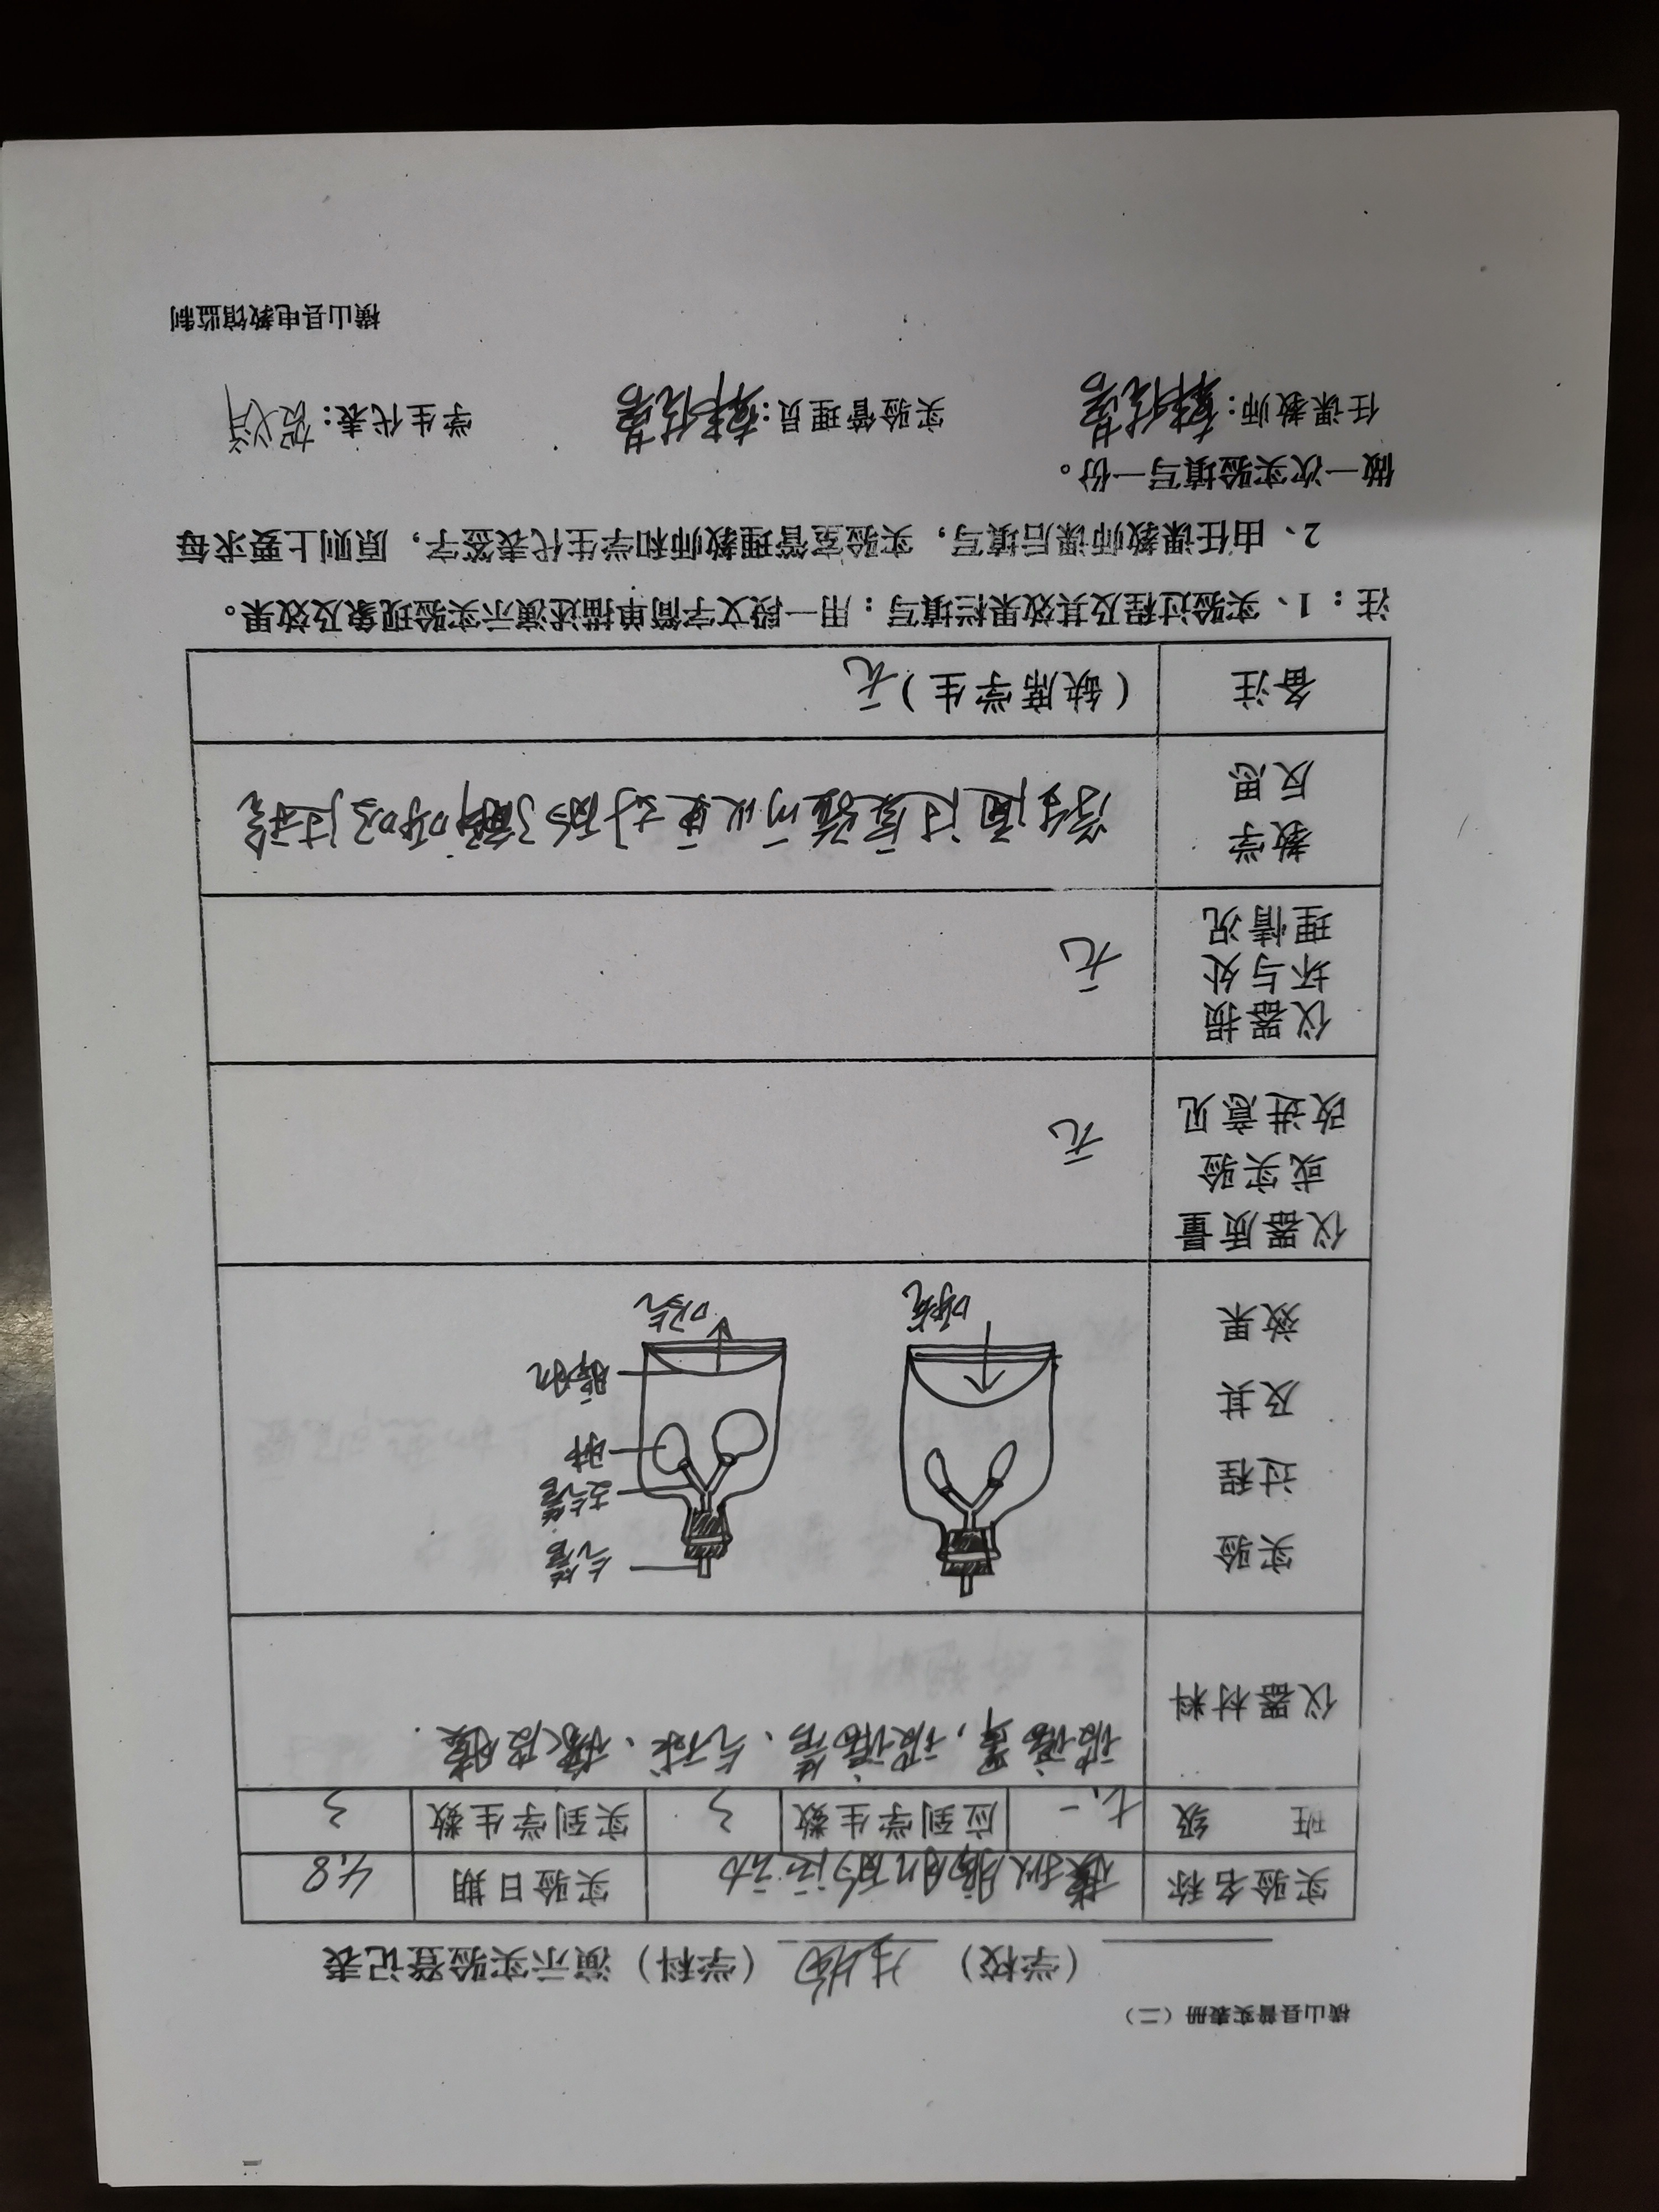 横山县普实表册（二）
（学校） 生物 （学科）演示实验登记表
实验名称 模拟膈肌的运动 实验日期 4.8
班 级 七.一 应到学生数 3 实到学生数 3
仪器材料 玻璃罩，玻璃管、气球、橡皮膜.
实验
过程
及其
效果
气管
支气管
肺
膈肌
呼气
吸气
仪器质量
或实验
改进意见
无
仪器损
坏与处
理情况
无
教学
反思
学生通过实验可以更好的了解呼吸过程
备注 （缺席学生）无
注：1、实验过程及其效果栏填写：用一段文字简单描述演示实验现象及效果。
2、由任课教师课后填写，实验室管理教师和学生代表签字，原则上要求每
做一次实验填写一份。
任课教师： 实验管理员： 学生代表：贺
横山县电教馆监制